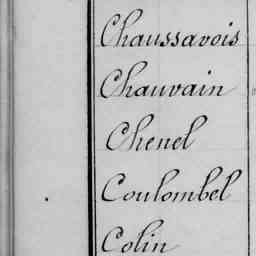 Chaussavois
Chauvain
Chenel
Coulombel
Colin